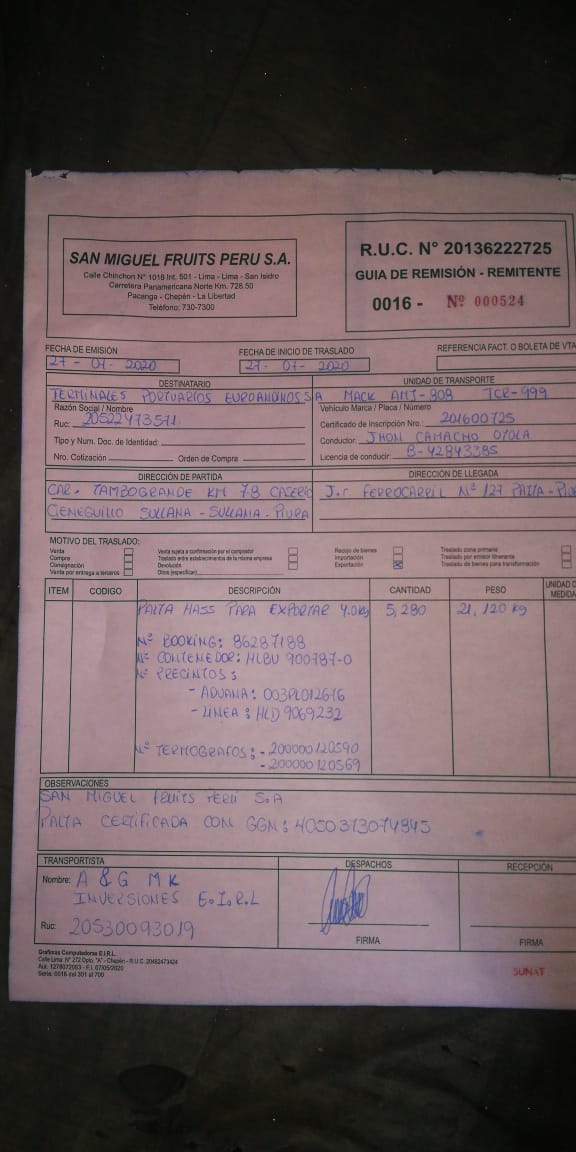 SAN MIGUEL FRUITS PERU S.A.
Calle Chinchon N° 1018 Int. 501 - Lima - Lima - San Isidro
Carretera Panamericana Norte Km. 728.50
Pacanga - Chepén - La Libertad
Teléfono: 730-7300
R.U.C. N° 20136222725
GUIA DE REMISIÓN - REMITENTE
0016 - Nº 000524
FECHA DE EMISIÓN
27 - 07 - 2020
FECHA DE INICIO DE TRASLADO
27 - 07 - 2020
REFERENCIA FACT. O BOLETA DE VTA
DESTINATARIO
TERMINALES PORTUARIOS EUROANDINOS SA
Razón Social / Nombre
Ruc: 20522473571
Tipo y Num. Doc. de Identidad:
Nro. Cotización Orden de Compra
UNIDAD DE TRANSPORTE
MACK TCR-999
Vehículo Marca / Placa / Número
Certificado de Inscripción Nro. 201600725
Conductor: JHON CAMACHO OYOLA
Licencia de conducir: B-42843385
DIRECCIÓN DE PARTIDA
CAR. TAMBOGRANDE KM 7.8 CASERIO
CIENEGUILLO SULLANA - SULLANA - PIURA
DIRECCIÓN DE LLEGADA
Jr FERROCARRIL Nº 127 PAITA - PIU
MOTIVO DEL TRASLADO:
Venta
Compra
Consignación
Venta por entrega a terceros
Venta sujeta a confirmación por el comprador
Traslado entre establecimientos de la misma empresa
Devolución
Otros (especificar)
Recojo de bienes
Importación
Exportación
Traslado zona primaria
Traslado por emisor itinerante
Traslado de bienes para transformación
ITEM CODIGO DESCRIPCIÓN CANTIDAD PESO UNIDAD D MEDIDA
PALTA HASS PARA EXPORTAR 4.0kg 5,280 21,120 kg
Nº BOOKING: 86287188
Nº CONTENEDOR: HLBU 900787-0
Nº PRECINTOS:
- ADUANA: 003PL012676
- LINEA: HLD 9069232
Nº TERMOGRAFOS: - 200000120590
- 200000120569
OBSERVACIONES
SAN MIGUEL FRUITS PERÚ S.A
PALTA CERTIFICADA CON GGN: 4050373074845
TRANSPORTISTA
Nombre: A & G MK
INVERSIONES E.I.R.L
Ruc: 20530093019
DESPACHOS
FIRMA
RECEPCIÓN
FIRMA
Graficas Computadoras E.I.R.L.
Calle Lima N° 272 Dpto. "A" - Chepén - R.U.C. 20482473424
Aut. 1278072003 - F.I. 07/05/2020
Serie: 0016 del 301 al 700
SUNAT